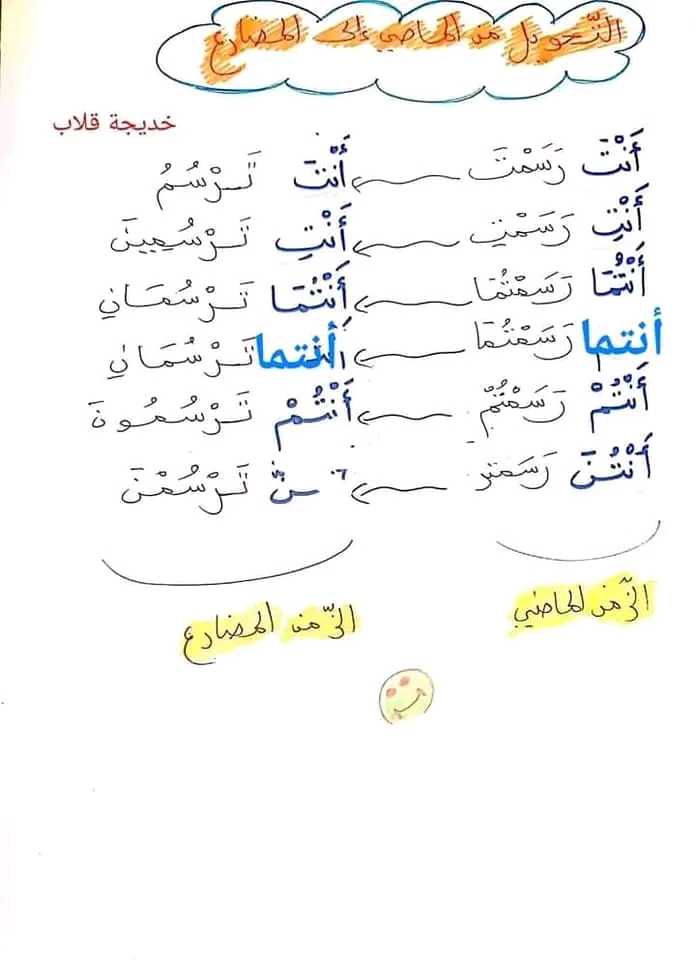 التّحويل من الماضي إلى المضارع
خديجة قلاب
أَنْتَ رَسَمْتَ أَنْتَ تَرْسُمُ
أَنْتِ رَسَمْتِ أَنْتِ تَرْسُمِينَ
أَنْتُمَا رَسَمْتُمَا أَنْتُمَا تَرْسُمَانِ
أنتما رَسَمْتُمَا أنتما تَرْسُمَانِ
أَنْتُمْ رَسَمْتُمْ أَنْتُمْ تَرْسُمُونَ
أَنْتُنَّ تَرْسُمْنَ
الزّمن الماضي الزّمن المضارع